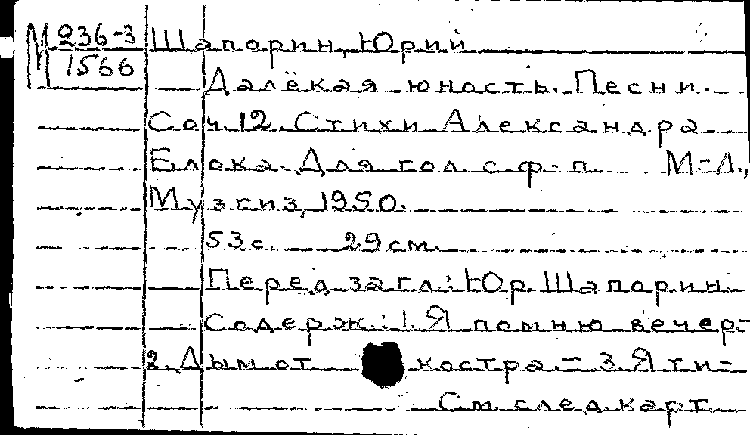 М 236-3 Шапорин, Юрий
1566
Далёкая юность. Песни.
Соч. 12. Стихи Александра
Блока. Для гол. с ф-п. М-Л.,
Музгиз, 1950.
53 с. 29 см.
Перед загл.: Юр. Шапорин
Содерж.: 1. Я помню вечер.-
2. Дым от костра.- 3. Я ти-
См. след. карт.